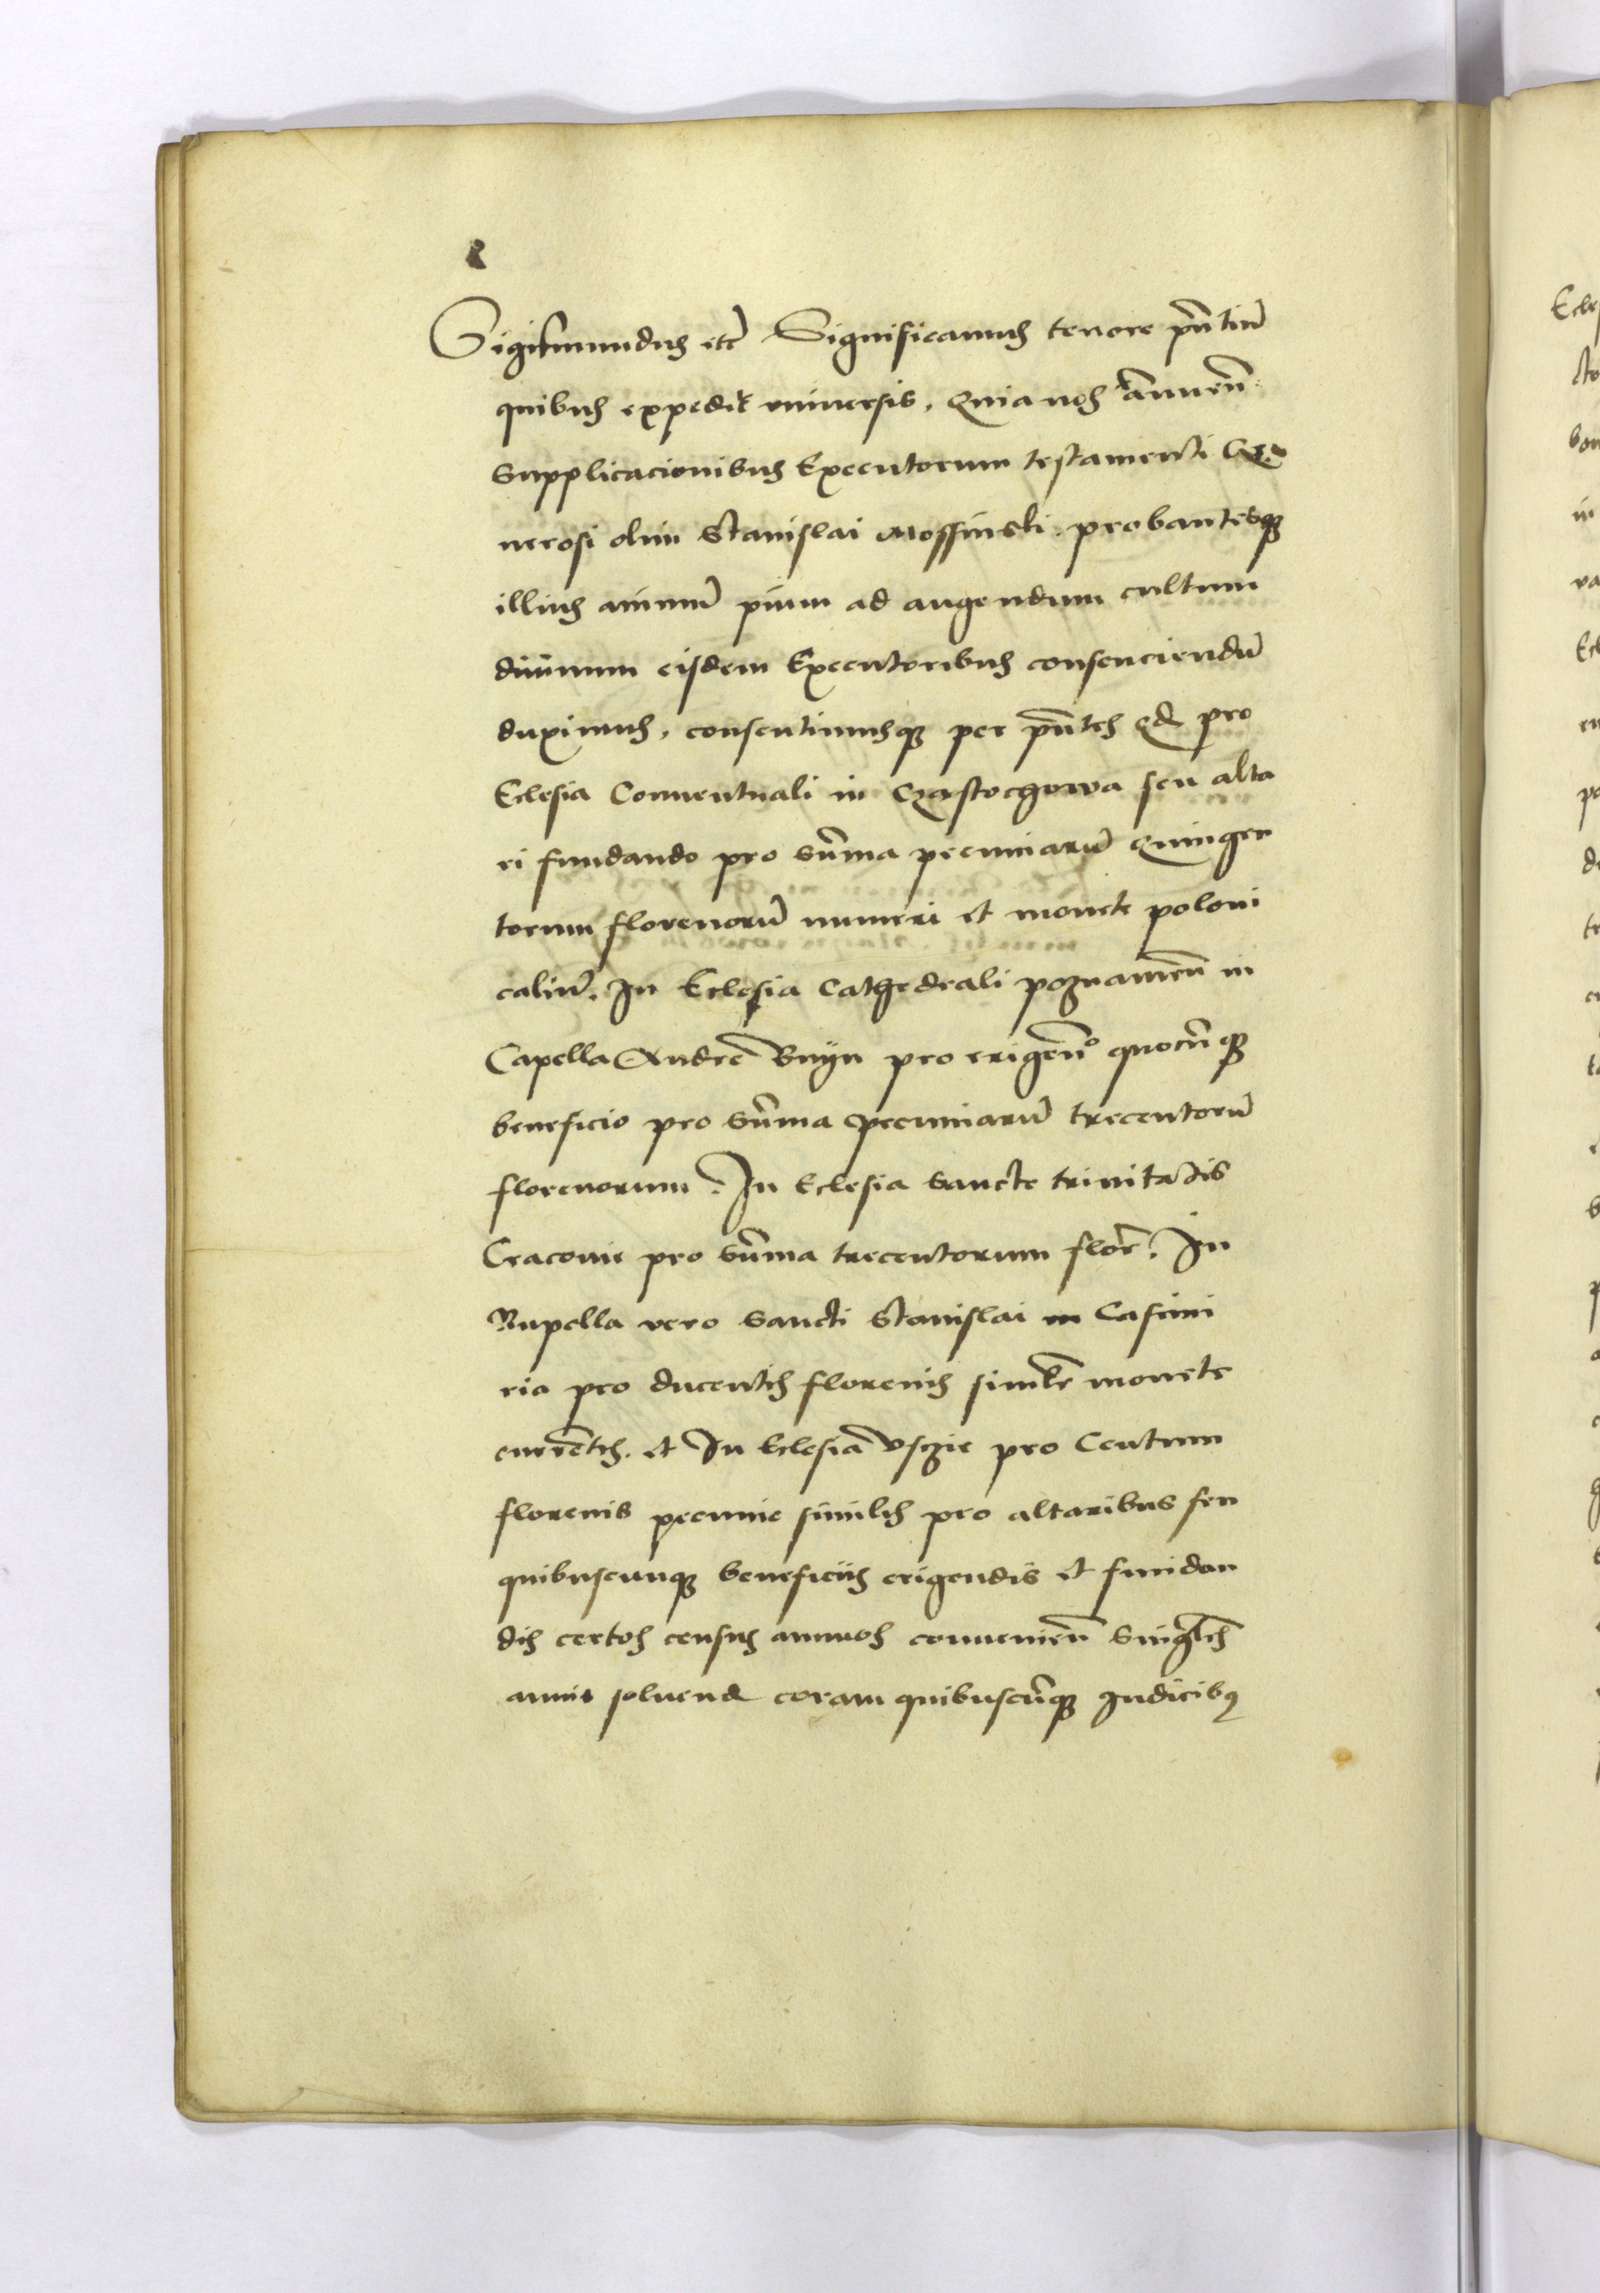 Sigismundus etc̄ Significamus tenore pn̄tiū
quibus expedit vniuersis, Quia nos annuen̄
supplicacionibus Executorum testamenti Ge
nerosi olim Stanislai Mossinski probantesq3
illius animū pium ad augendum cultum
diuinum eisdem Executoribus consenciendū
duximus, consentimusq3 per pn̄tes Qd pro
Eclesia Conuentuali in Czastochowa seu alta
ri fundando pro sum̄a pecuniarū Quingen
torum florenorū numeri et monete poloni
caliū. In Eclesia Cathedrali poznanien̄ in
Capella Andree Bnyn pro erigen̄o quocūq3
beneficio pro sum̄a pecuniarū trecentorū
florenorum. In Eclesia sancte trinitatis
Cracouie pro sum̄a trecentorum flor̄. In
Rupella vero sancti Stanislai in Casimi
ria pro ducentis florenis simlr̄ monete
curren̄tis. et In Eclesia Vsczie pro Centum
florenis pecunie similis pro altaribus seu
quibuscunq3 beneficiis erigendis et fundan
dis certos census annuos conuenien̄ Singlis̄
annis soluend coram quibuscūq3 Iudicib9
Ecle